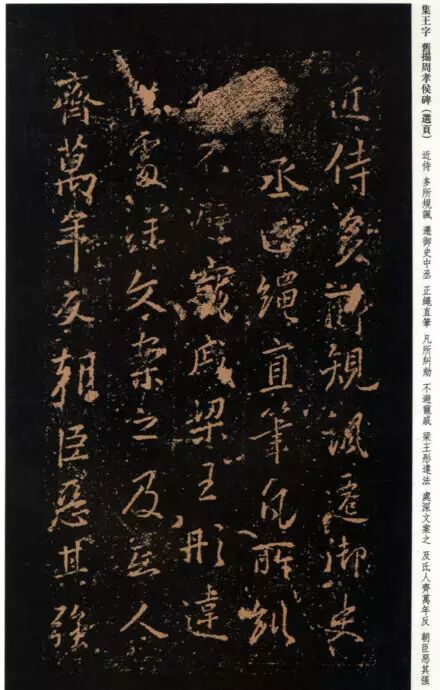 集王字 舊搨周孝侯碑（選頁） 近侍 多所規諷 遷御史中丞 正繩直筆 凡所糾劾 不避寵戚 梁王彤違法 處深文案之 及氐人齊萬年反 朝臣惡其强
近侍多所規諷遷御史
丞正繩直筆凡所糾
不避寵戚梁王彤違
法處深文案之及氐人
齊萬年反朝臣惡其强